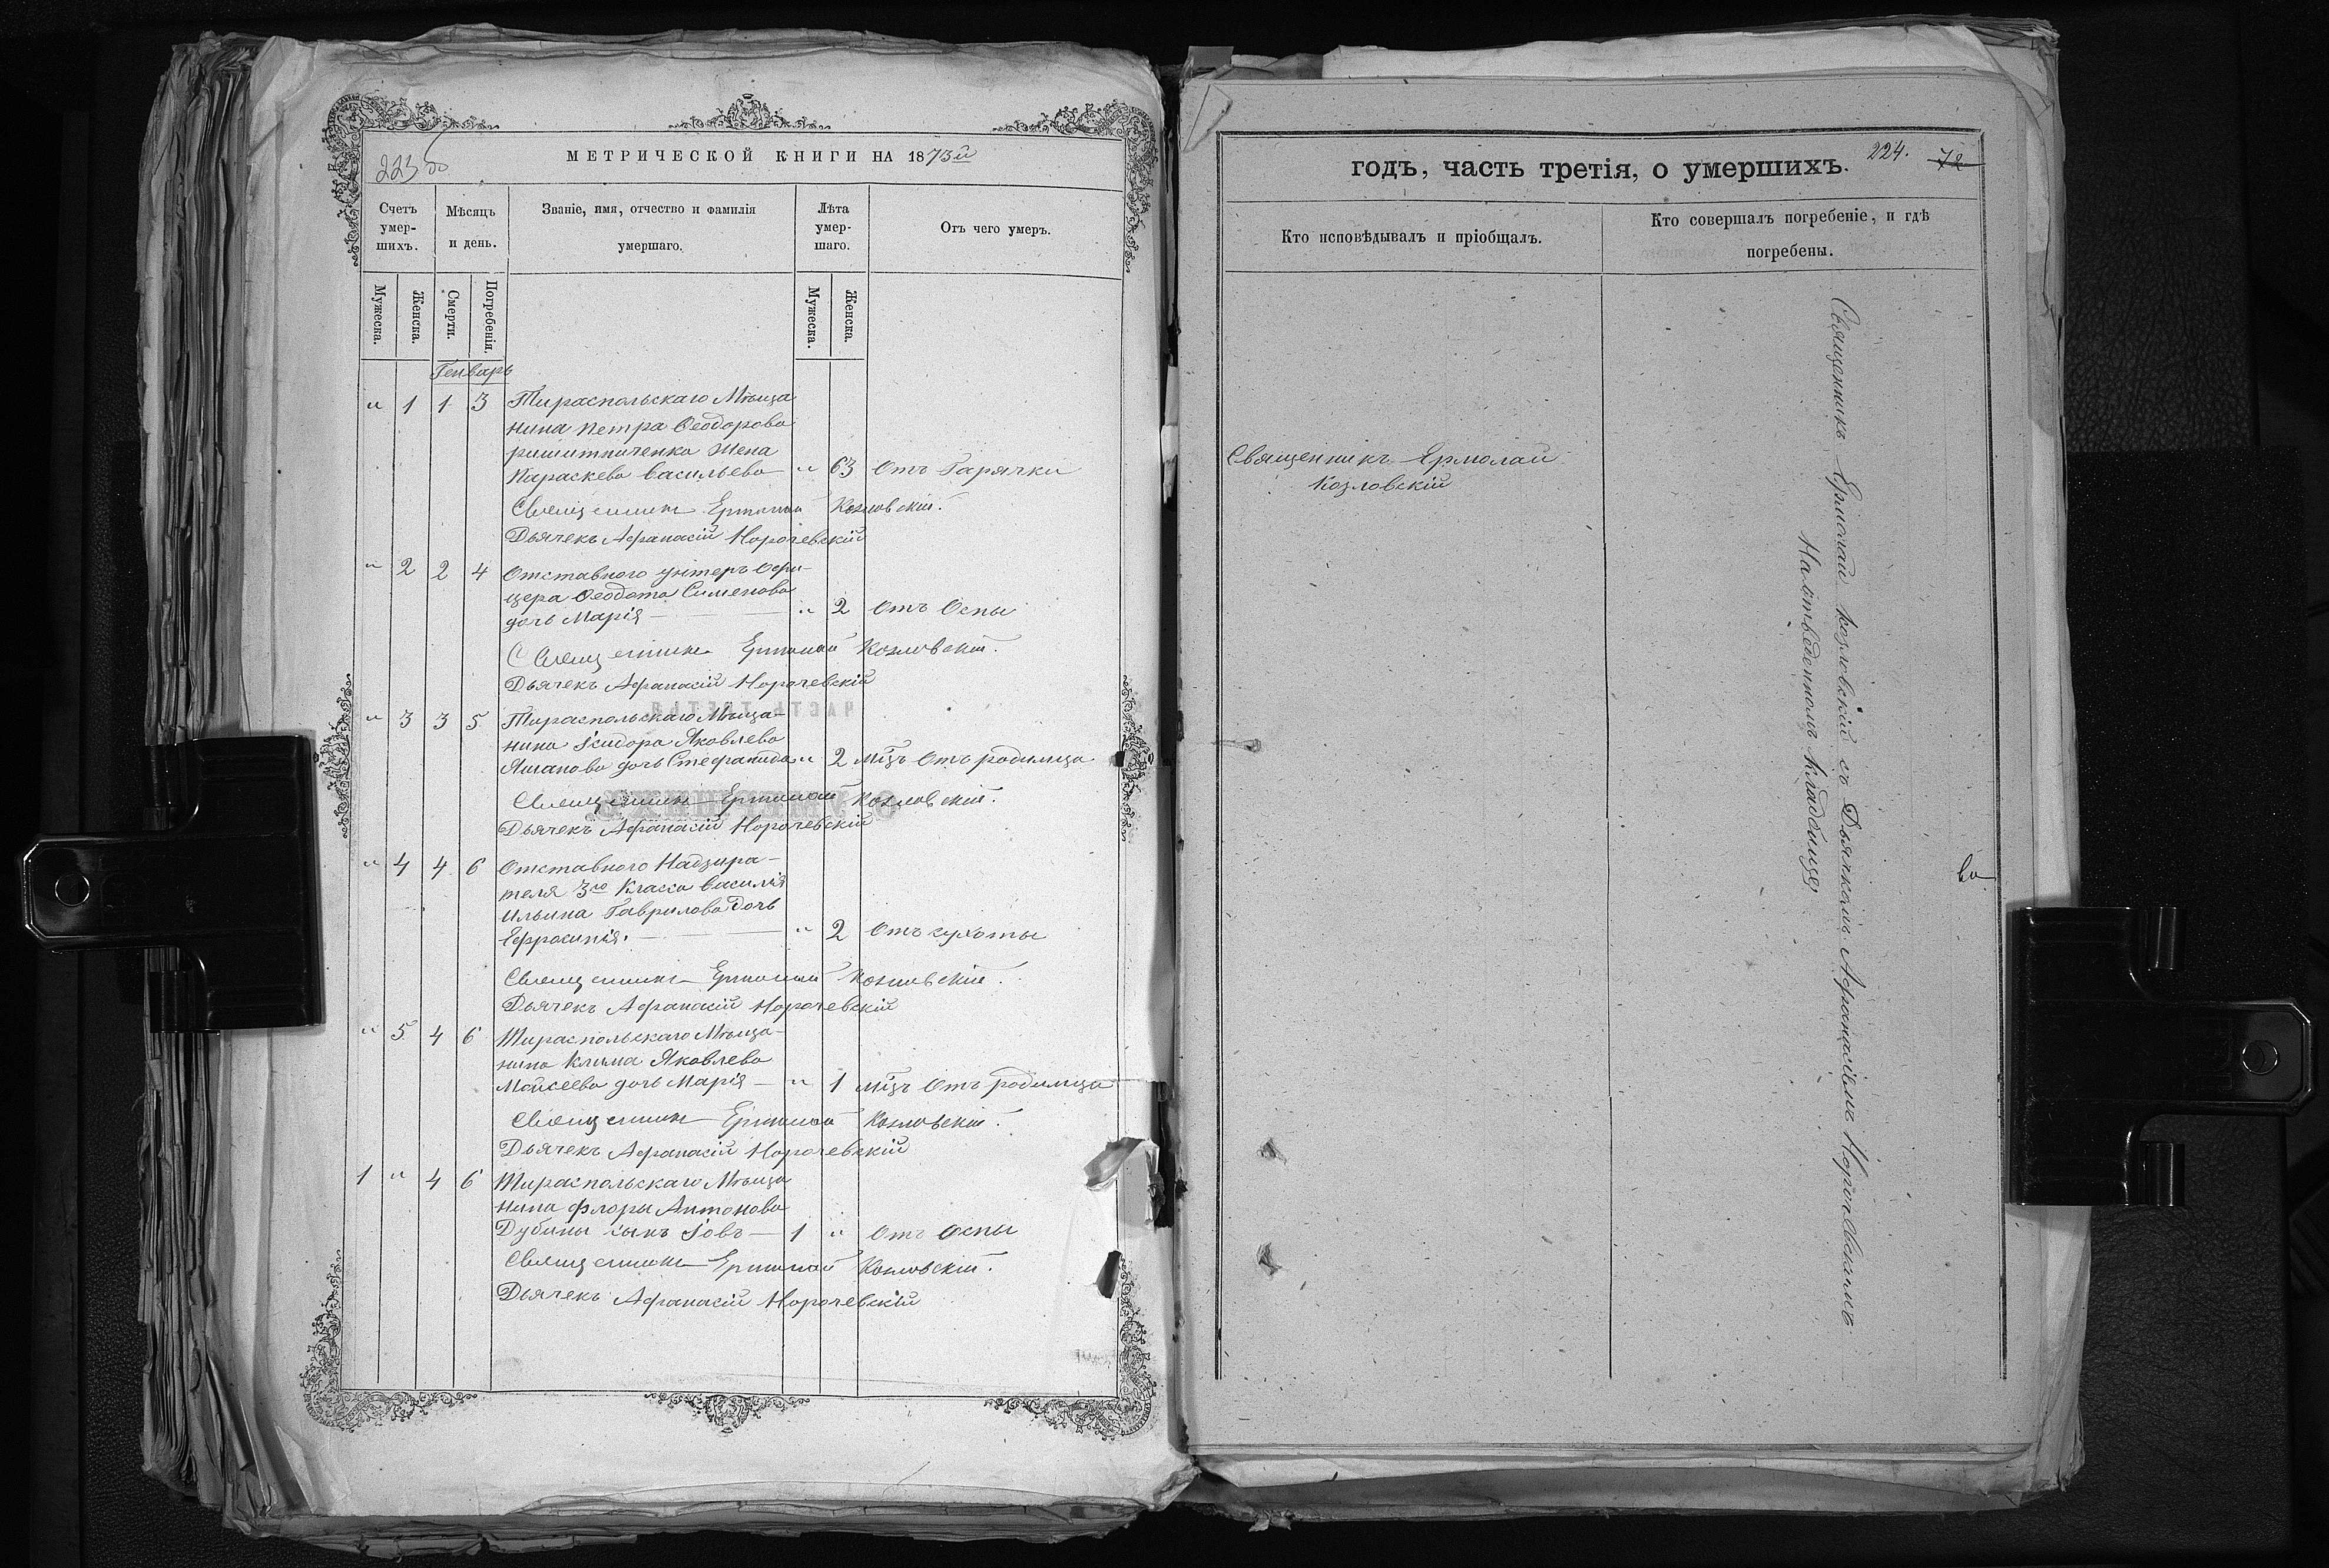 223 об
МЕТРИЧЕСКОЙ КНИГИ НА 1873й
Счетъ умер-шихъ.
Мѣсяцъ и день.
Званіе, имя, отчество и фамилія умершаго.
Лѣта умер-шаго.
Отъ чего умеръ.
Мужеска.
Женска.
Смерти.
Погребенія.
Мужеска.
Женска.
Генварь
" 1 1 3 Тираспольскаго Мѣща
нина Петра Ѳеодорова
жена
Параскева Васильева " 63 Отъ Гарячки
Священникъ Ермолай Козловскій.
Дьячекъ Афанасій Норочевскій
" 2 2 4 Отставного унтеръ Офи-
цера Ѳеодота Сименова
дочь Марія " 2 Отъ Оспы
Священникъ Ермолай Козловскій.
Дьячекъ Афанасій Норочевскій
" 3 3 5 Тираспольскаго Мѣща-
нина Ісидора Яковлева
дочь Стефанида " 2 мцъ Отъ родимца
Священникъ Ермолай Козловскій.
Дьячекъ Афанасій Норочевскій
" 4 4 6 Отставного Надзира-
теля 3го Класса Василія
Ильина Гаврилова дочь
Ефросинія. " 2 Отъ сухоты
Священникъ Ермолай Козловскій.
Дьячекъ Афанасій Норочевскій
" 5 4 6 Тираспольскаго Мѣща-
нина Клима Яковлева
Моисеева дочь Марія " 1 мцъ Отъ родимца
Священникъ Ермолай Козловскій.
Дьячекъ Афанасій Норочевскій
1 " 4 6 Тираспольскаго Мѣща
нина Флоры Антонова
Дубины сынъ Іовъ 1 " Отъ Оспы
Священникъ Ермолай Козловскій.
Дьячекъ Афанасій Норочевскій
годъ, часть третія, о умершихъ.
224.
72
Кто исповѣдывалъ и пріобщалъ.
Кто совершалъ погребеніе, и гдѣ погребены.
Священникъ Ермолай
Козловскій
Священникъ Ермолай Козловскій съ Дьячкомъ Афанасіемъ Норочевскимъ
На отведенномъ кладбищѣ